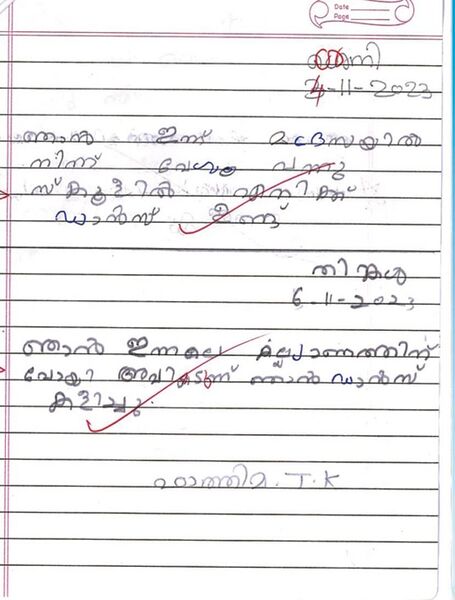 Date
Page
ശനി
4-11-2023
ഞാൻ ഇന്ന് മദ്രസയിൽ
നിന്ന് വേഗം വന്നു
സ്കൂളിൽ എനിക്ക്
ഡാൻസ് ഉണ്ട്
തിങ്കൾ
6-11-2023
ഞാൻ ഇന്നലെ കല്ല്യാണത്തിന്
പോയി അവിടുന്ന് ഞാൻ ഡാൻസ്
കളിച്ചു.
ഫാത്തിമ. T. K